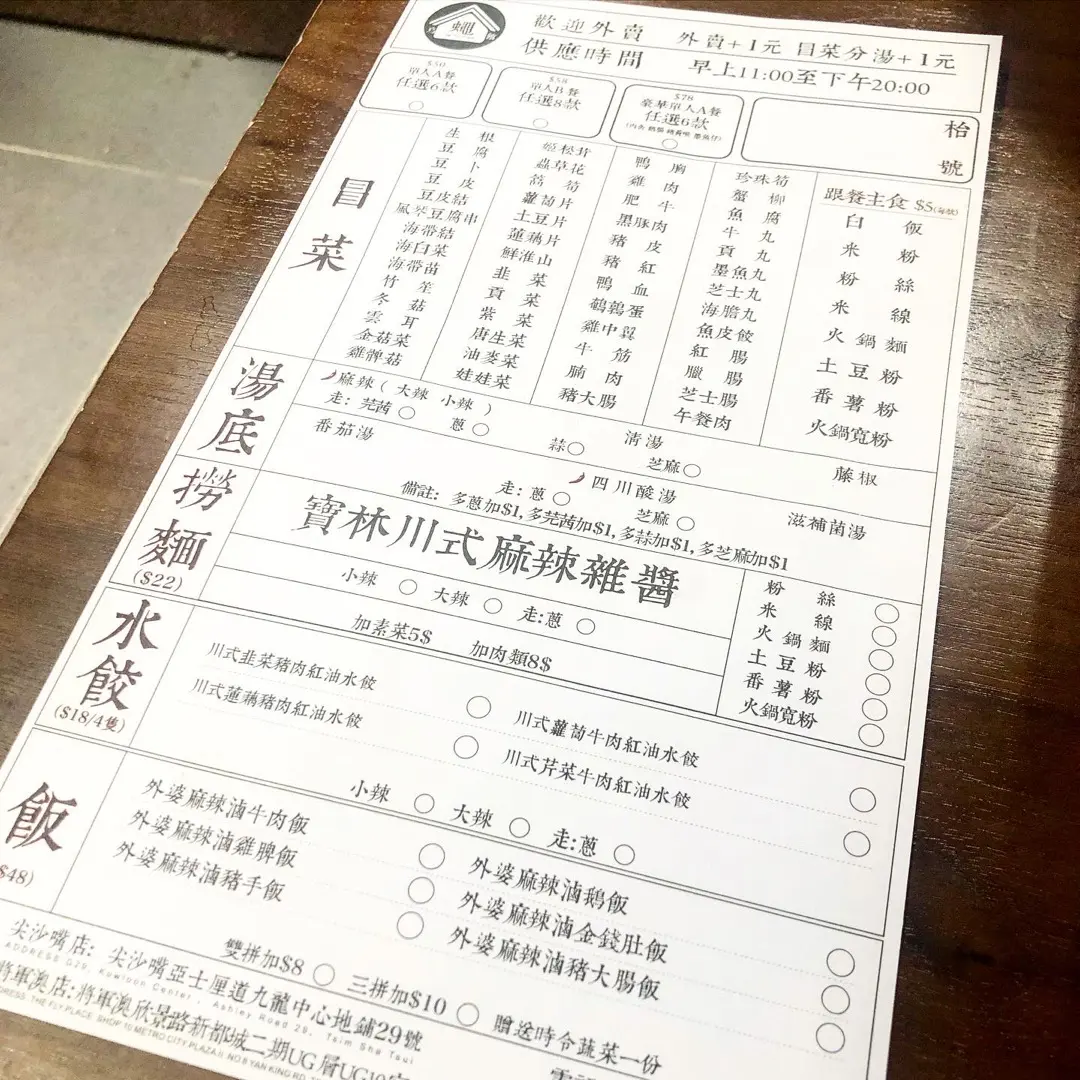 歡迎外賣 外賣+1元 冒菜分湯+1元
供應時間 早上11:00至下午20:00
$50
單人A餐
任選6款
$58
單人B餐
任選8款
$78
豪華單人A餐
任選6款
枱
號
冒菜
生根
豆腐
豆卜
豆皮
豆皮結
風琴豆腐串
海帶結
海白菜
海帶苗
竹笙
冬菇
雲耳
金菇菜
雞髀菇
姬松茸
蟲草花
筍
蘿蔔片
土豆片
蓮藕片
鮮淮山
韭菜
貢菜
紫菜
唐生菜
油麥菜
娃娃菜
鴨胸
雞肉
肥牛
黑豚肉
豬皮
豬紅
鴨血
鵪鶉蛋
雞中翼
牛筋
腩肉
豬大腸
珍珠筍
蟹柳
魚腐
牛丸
貢丸
墨魚丸
芝士丸
海膽丸
魚皮餃
紅腸
臘腸
芝士腸
午餐肉
跟餐主食 $5(每款)
白飯
米粉
粉絲
米線
火鍋麵
土豆粉
番薯粉
火鍋寬粉
湯底
麻辣( 大辣 小辣 ) 清湯 藤椒
走: 芫茜 蔥 蒜 芝麻
番茄湯 四川酸湯 滋補菌湯
走: 蔥 芝麻
備註: 多蔥加$1,多芫茜加$1,多蒜加$1,多芝麻加$1
撈麵
($22)
寶林川式麻辣雜醬
小辣 大辣 走:蔥
加素菜5$ 加肉類8$
粉絲
米線
火鍋麵
土豆粉
番薯粉
火鍋寬粉
水餃
($18/4隻)
川式韭菜豬肉紅油水餃 川式蘿蔔牛肉紅油水餃
川式蓮藕豬肉紅油水餃 川式芹菜牛肉紅油水餃
小辣 大辣 走:蔥
飯
$48)
外婆麻辣滷牛肉飯 外婆麻辣滷鵝飯
外婆麻辣滷雞脾飯 外婆麻辣滷金錢肚飯
外婆麻辣滷豬手飯 外婆麻辣滷豬大腸飯
雙拼加$8 三拼加$10 贈送時令蔬菜一份
尖沙嘴店: 尖沙嘴亞士厘道九龍中心地鋪29號
ADDRESS G29, Kowloon Center, Ashley Road 29, Tsim Sha Tsui
將軍澳店:將軍澳欣景路新都城二期UG層UG10
THE FLY PLACE SHOP 10 METRO CITY PLAZA II NO 8 YAN KING RD